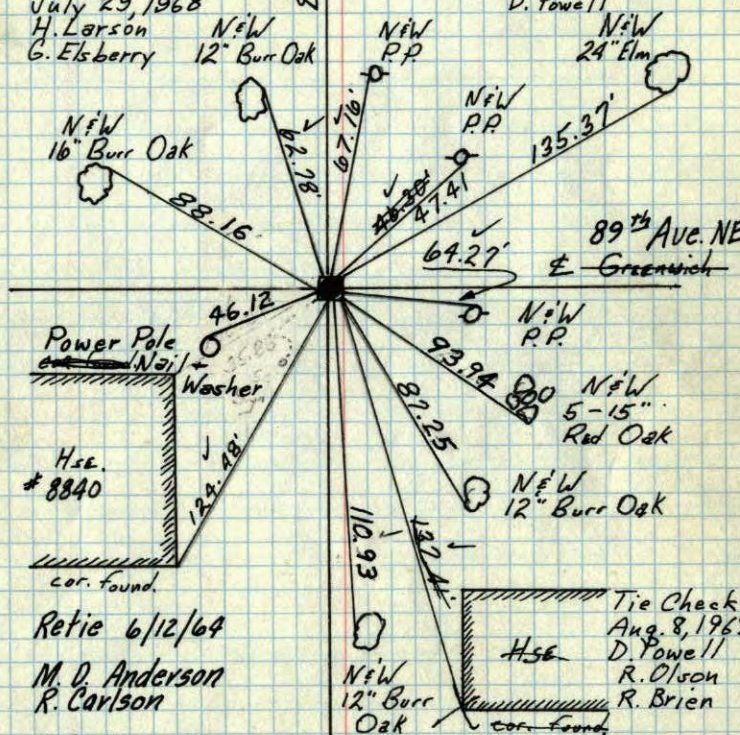 July 29, 1968
H. Larson
G. Elsberry
D. Powell
N&W
12" Burr Oak
N&W
P.P.
N&W
24" Elm
N&W
16" Burr Oak
N&W
P.P.
62.78'
67.16'
135.37'
88.16'
46.30'
47.41
89th Ave. NE
64.27'
℄ Greenwich
46.12
N&W
P.P.
Power Pole
Nail +
Washer
93.94
N&W
5-15"
Red Oak
87.25
Hse.
# 8840
124.48'
N&W
12" Burr Oak
110.93
cor. found.
Retie 6/12/64
M. D. Anderson
R. Carlson
N&W
12" Burr
Oak
Hse
cor. found
Tie Check
Aug. 8, 196
D. Powell
R. Olson
R. Brien